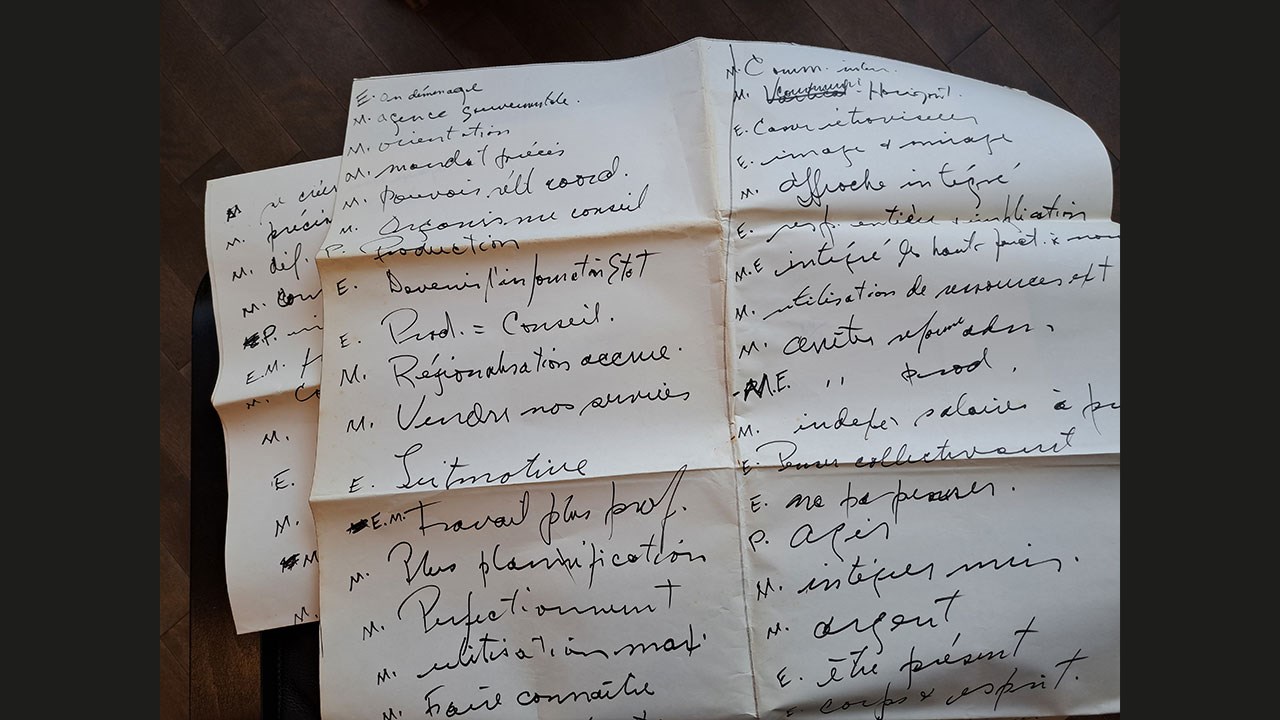 M. se crée
M. préci
M. déf.
M. Com
P.
E.M.
M. Co
M.
E.
M.
M
M.
E. on déménage
M. agence gouvernementale.
M. orientation
M. mandat précis
M. pouvoir réll coord.
M. Organisme conseil
P. Production
E. Devenir l'information Etat
E. Prod. = Conseil.
M. Régionalisation accrue.
M. Vendre nos services
E. Leitmotive
E.M. Travail plus prof.
M. Plus planification
M. Perfectionnement
M. utilisation max.
M. Faire connaître
M. Comm. inter.
M. Horizont.
E. Casser rétroviseur
E. image & mirage
M. Approche intégré
E. resp. entière & implication
M.E intégré les hauts fonct. à nou
M. utilisation de ressources ext
M. arrêter réforme adm.
M.E. " prod.
M. indexer salaires à pr
E. Penser collectivement
E. ne pas penser.
P. Agir
M. intégrer min.
M. argent
E. être présent
E corps & esprit.